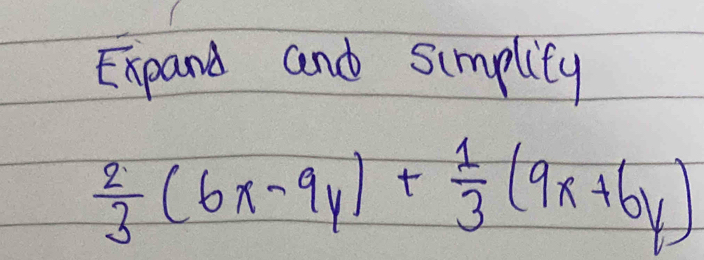 Expand and simplify
2/3 (6x-9y) + 1/3 (9x+6y)